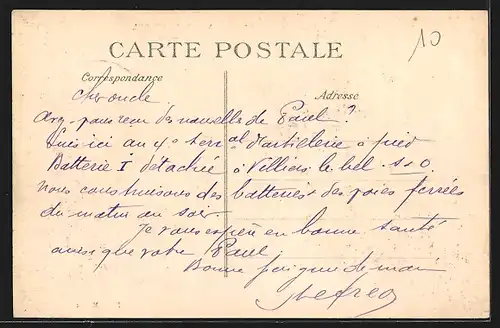 10
CARTE POSTALE
Correspondance
Adresse
cher oncle
avez-vous reçu des nouvelles de Paul ?
suis ici au 4e terral d'artillerie à pied
Batterie I détachée à Villiers le bel s-o
nous construisons des batteries et des voies ferrées
du matin au soir
Je vous espère en bonne santé
ainsi que votre Paul
Bonne poignée de main